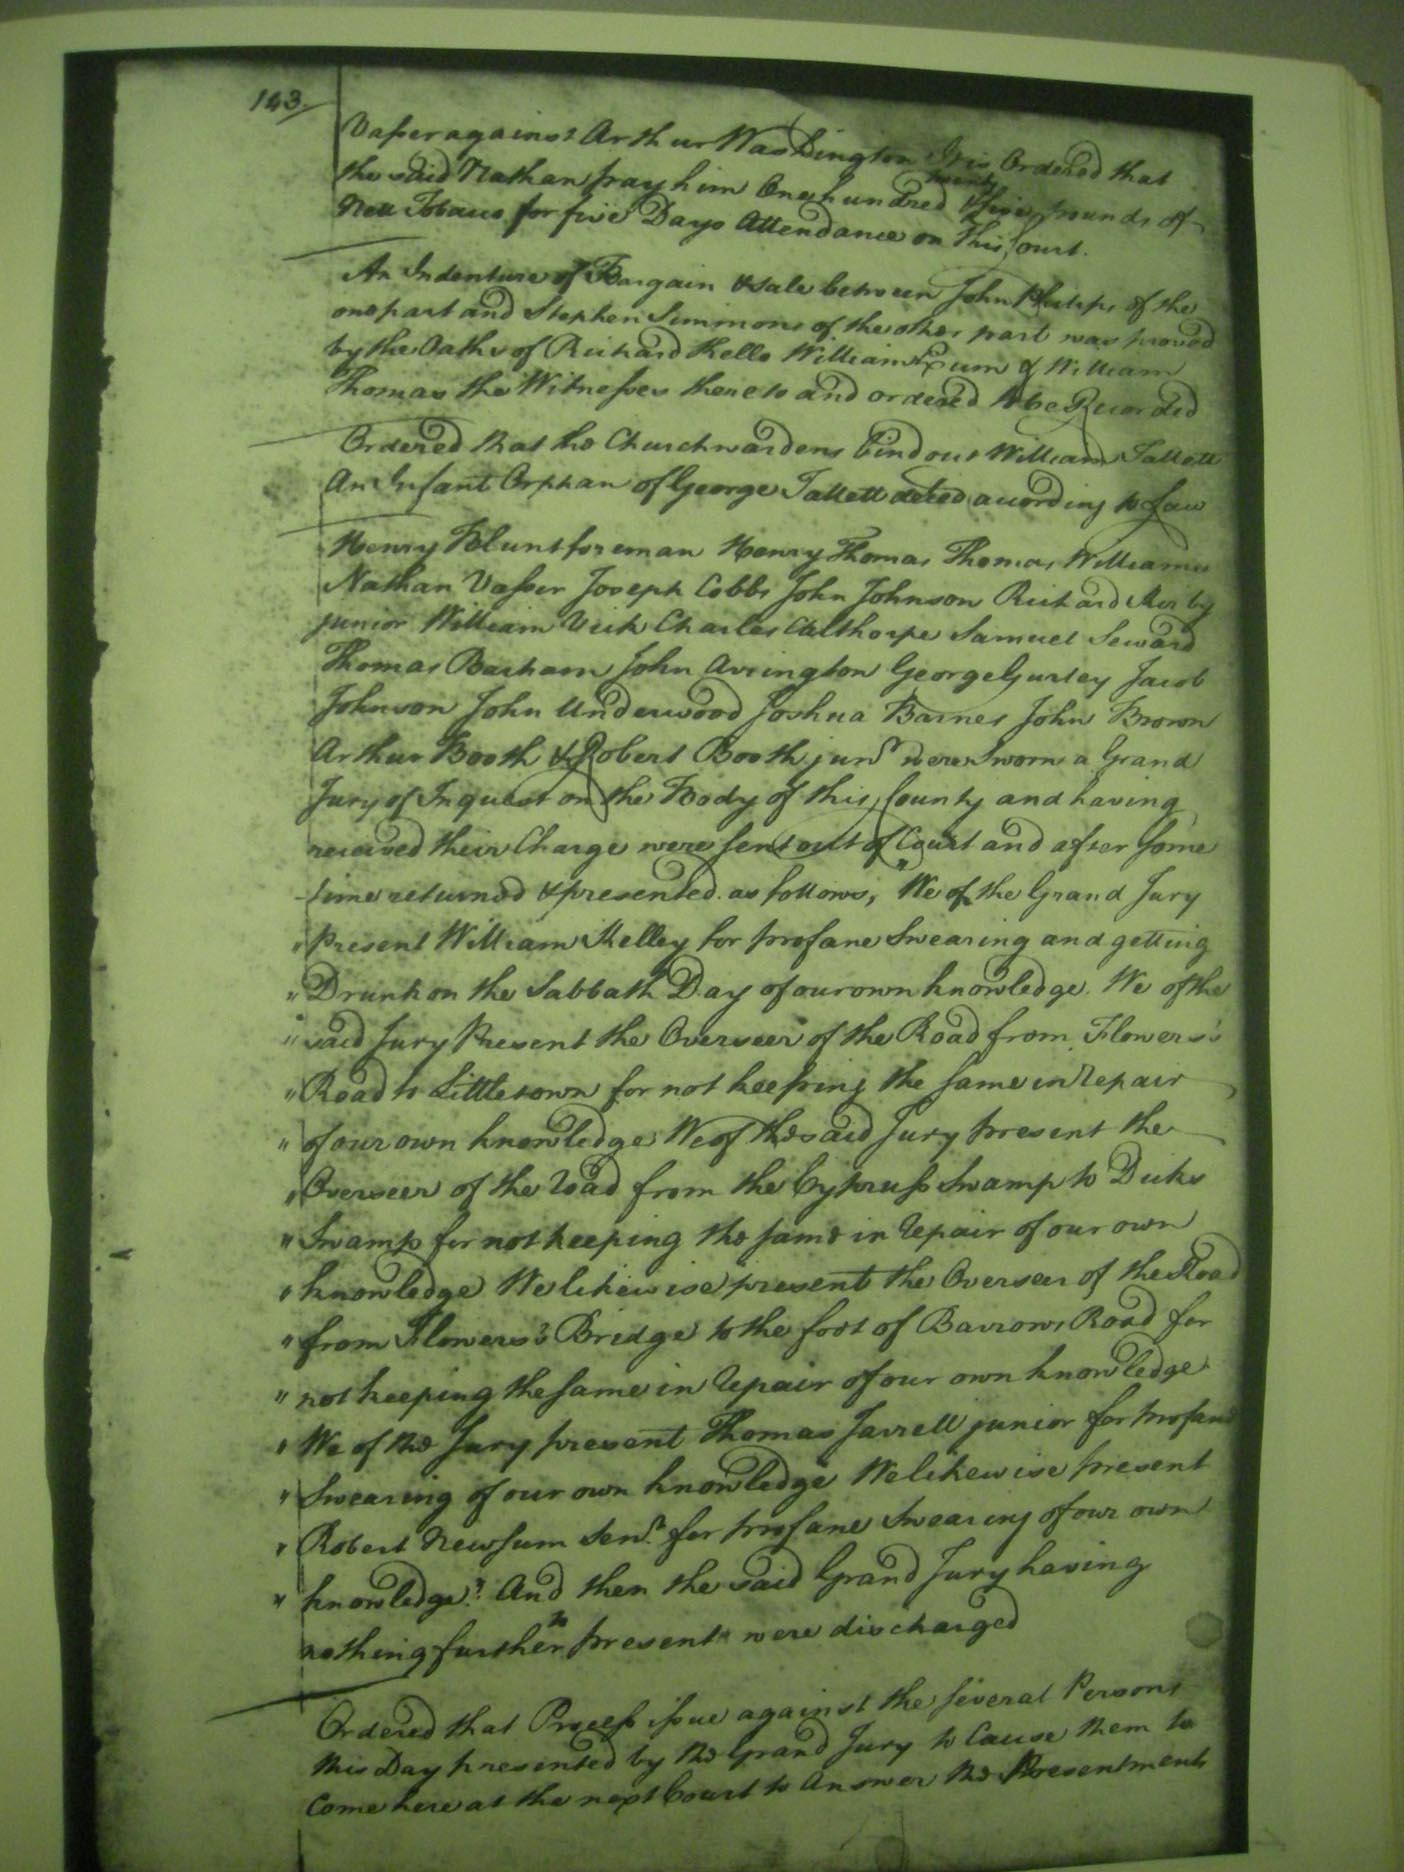 143.
Vasser against Arthur Washington It is Ordered that
the said Nathan pay him One hundred & twenty five pounds of
Nett Tobacco for five Days Attendance on this Court.
An Indenture of Bargain & Sale between John Phillips of the
one part and Stephen Simmons of the other part was proved
by the Oaths of Richard Kello William Exum & William
Thomas the Witnesses thereto and ordered to be Recorded
Ordered that the Churchwardens bind out William Tallett
An Infant Orphan of George Tallett deced according to Law
Henry Blunt foreman Henry Thomas Thomas Williams
Nathan Vasser Joseph Cobbs John Johnson Richard Kirby
junior William Vick Charles Calthorpe Samuel Seward
Thomas Barham John Arrington George Gurley Jacob
Johnson John Underwood Joshua Barnes John Brown
Arthur Booth & Robert Booth junr. were Sworn a Grand
Jury of Inquest on the Body of this County and having
received their Charge were sent out of Court and after some
time returned & presented as follows, "We of the Grand Jury
" Present William Kelley for profane Swearing and getting
" Drunk on the Sabbath Day of our own knowledge. We of the
" said Jury Present the Overseer of the Road from Flowers's
" Road to Littletown for not keeping the same in repair
" of our own knowledge We of the said Jury present the
" Overseer of the road from the Cypruss Swamp to Dicks
" Swamp for not keeping the same in repair of our own
" knowledge We likewise present the Overseer of the Road
" from Flowers's Bridge to the foot of Barrows Road for
" not keeping the same in repair of our own knowledge
" We of the Jury present Thomas Jarrell junior for profane
" Swearing of our own knowledge We likewise present
" Robert Newsum Senr. for profane Swearing of our own
" knowledge." And then the said Grand Jury having
nothing further to present were discharged
Ordered that Process issue against the several Persons
this Day presented by the Grand Jury to Cause them to
Come here at the next Court to Answer the Presentments